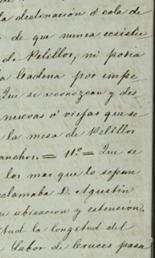 la destinación ó cola de
de que nunca coexistie
de Pelillos, ni podia
la Cadena por impe
Que se reconozcan y des
nuevas ó viejas que se
la mesa de Pelillos
anchos. = 11º = Que se
los mas que lo sepan
clamaba D. Agustin
u ubicacion y estension
tud la longitud del
Cabor de Cruces pasa